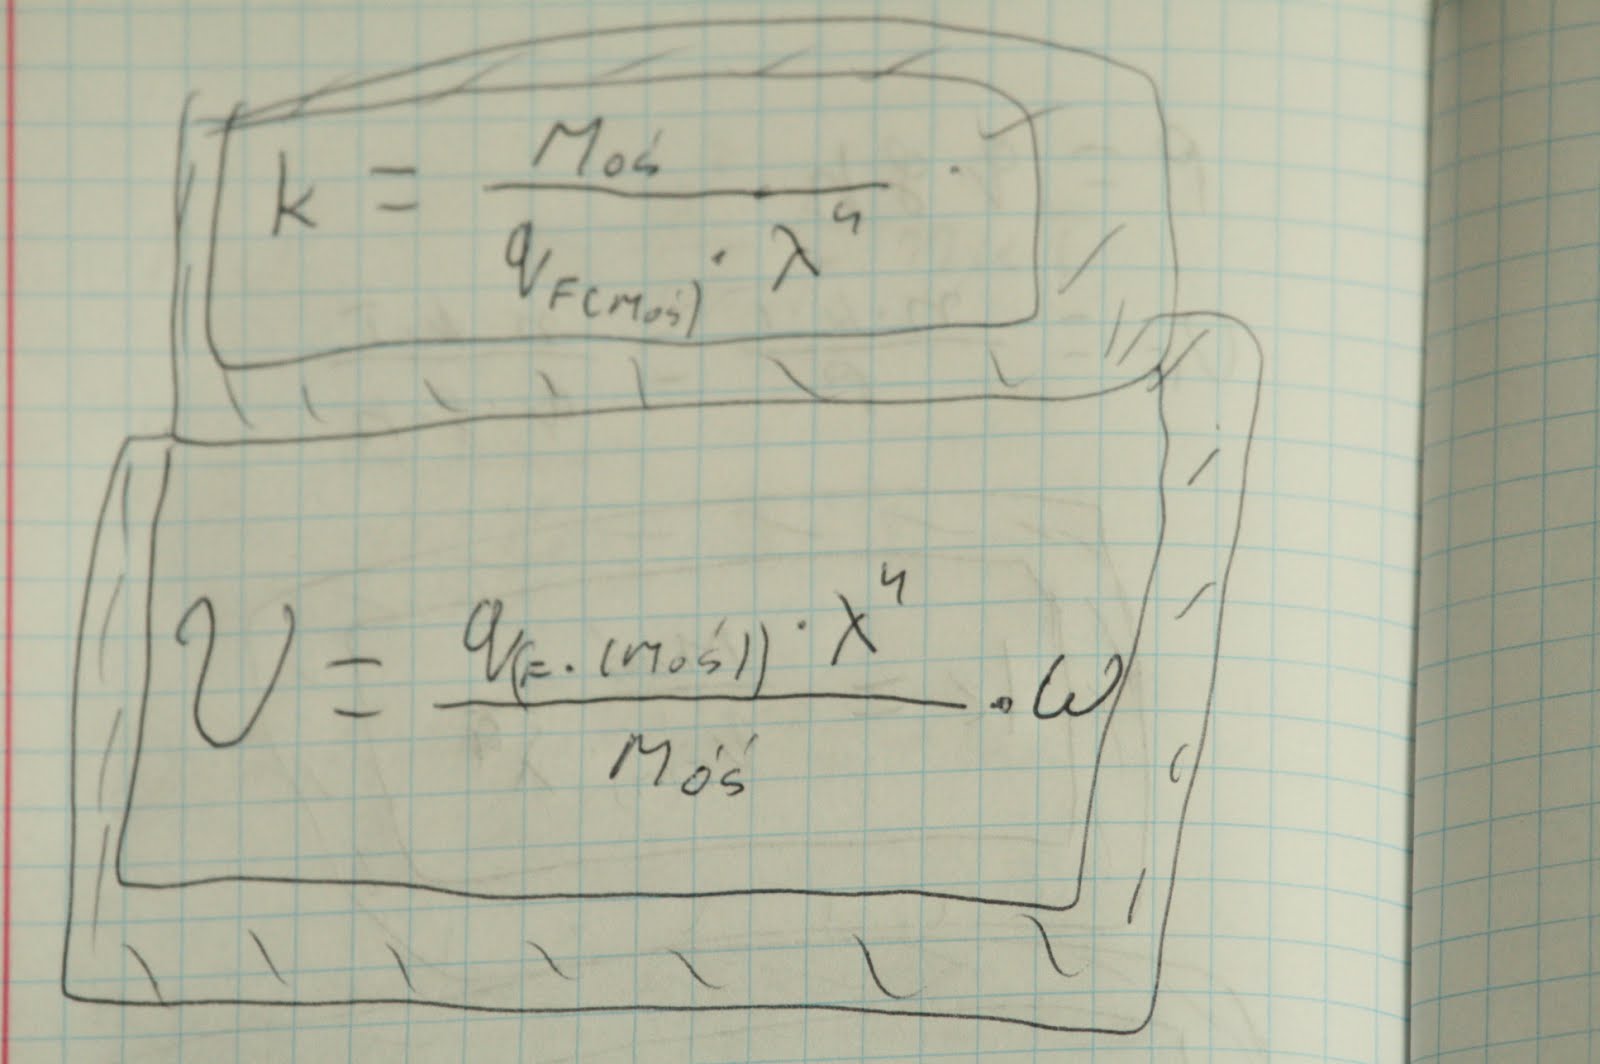 k = Moś / qF(Moś) · λ⁴ ·
V = q(F·(Moś)) · λ⁴ / Móś · ω